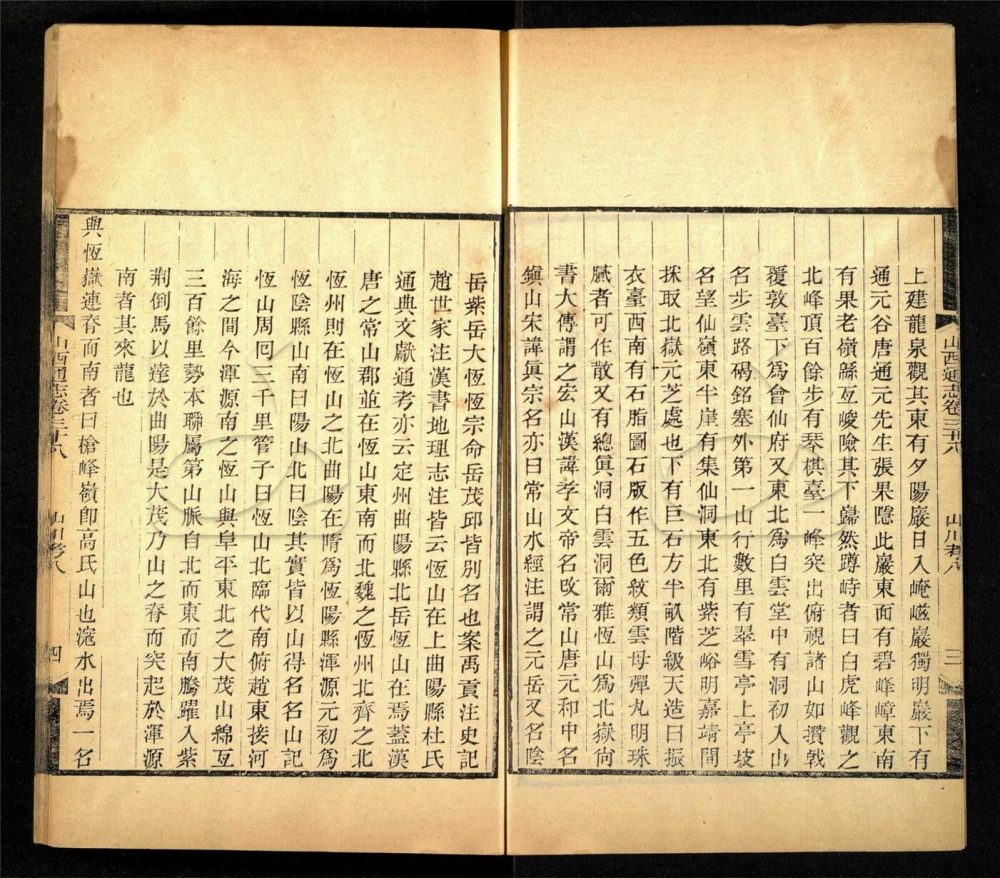 上建龍泉觀其東有夕陽巖日入崦嵫巖獨明巖下有
通元谷唐通元先生張果隱此巖東面有碧峰嶂東南
有果老嶺緜亙峻險其下巋然蹲峙者曰白虎峰觀之
北峰頂百餘步有琴棋臺一峰突出俯視諸山如攢戟
覆敦臺下爲會仙府又東北爲白雲堂中有洞初入山
名步雲路碣銘塞外第一山行數里有翠雪亭上亭坡
名望仙嶺東半崖有集仙洞東北有紫芝峪明嘉靖間
採取北嶽元芝處也下有巨石方半畝階級天造曰振
衣臺西南有石脂圖石版作五色紋類雲母彈丸明珠
膩者可作散又有總眞洞白雲洞爾雅恆山爲北嶽尙
書大傳謂之宏山漢諱孝文帝名改常山唐元和中名
鎭山宋諱眞宗名亦曰常山水經注謂之元岳又名陰
山西通志卷三十八 山川考八 三
岳紫岳大恆恆宗命岳茂邱皆別名也案禹貢注史記
趙世家注漢書地理志注皆云恆山在上曲陽縣杜氏
通典文獻通考亦云定州曲陽縣北岳恆山在焉蓋漢
唐之常山郡並在恆山東南而北魏之恆州北齊之北
恆州則在恆山之北曲陽在隋爲恆陽縣渾源元初爲
恆陰縣山南曰陽山北曰陰其實皆以山得名名山記
恆山周囘三千里管子曰恆山北臨代南俯趙東接河
海之間今渾源南之恆山與阜平東北之大茂山綿亙
三百餘里勢本聯屬第山脈自北而東而南騰躍入紫
荆倒馬以達於曲陽是大茂乃山之脊而突起於渾源
南者其來龍也
與恆嶽連脊而南者曰槍峰嶺卽高氏山也滱水出焉一名
山西通志卷三十八 山川考八 四